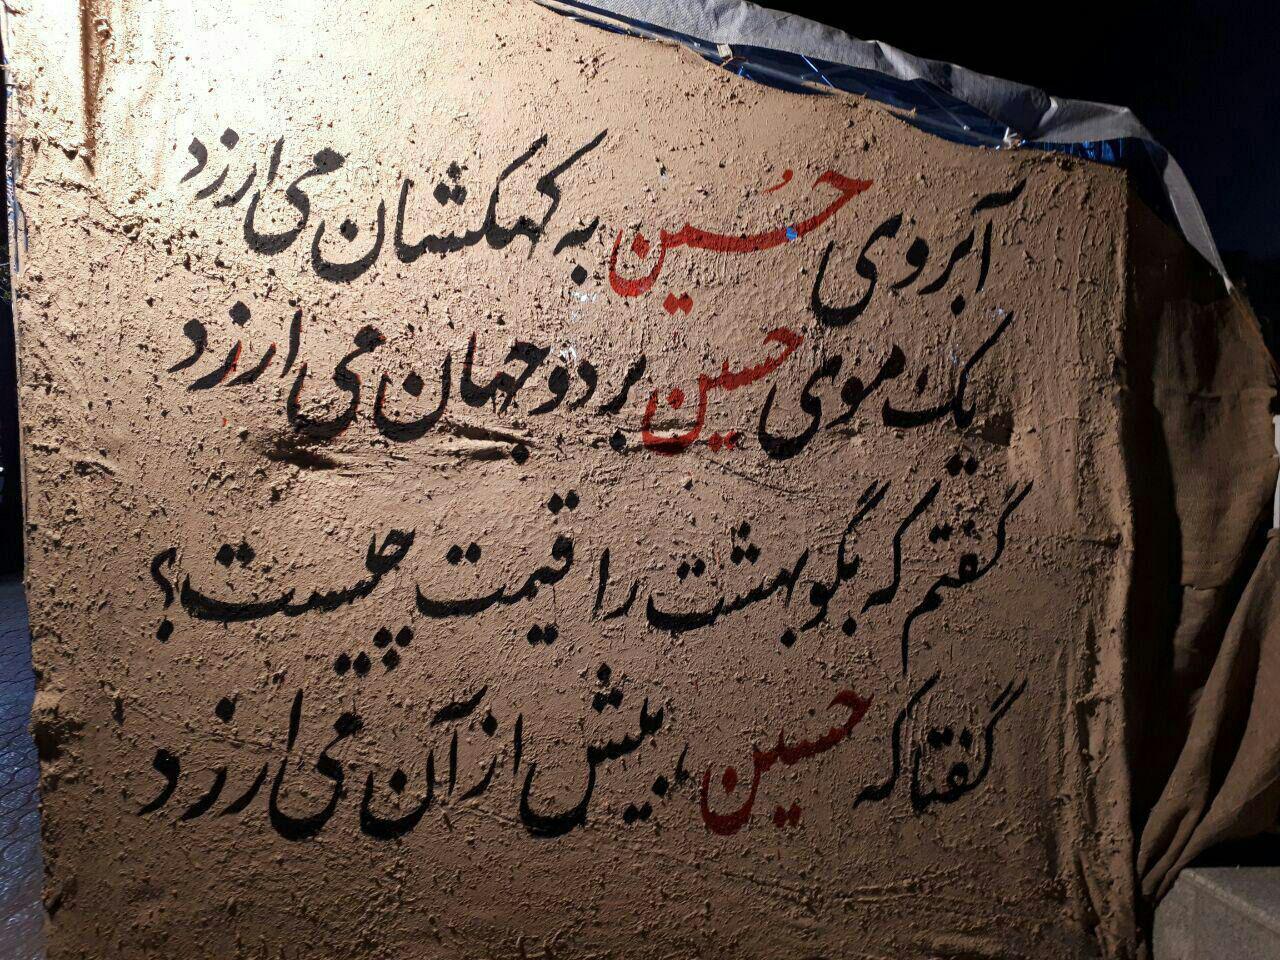 آبروی حُسین به کهکشان می ارزد
یک موی حسین بر دو جهان می ارزد
گفتم که بگو بهشت را قیمت چیست؟
گفتا که حسین، بیش از آن می ارزد